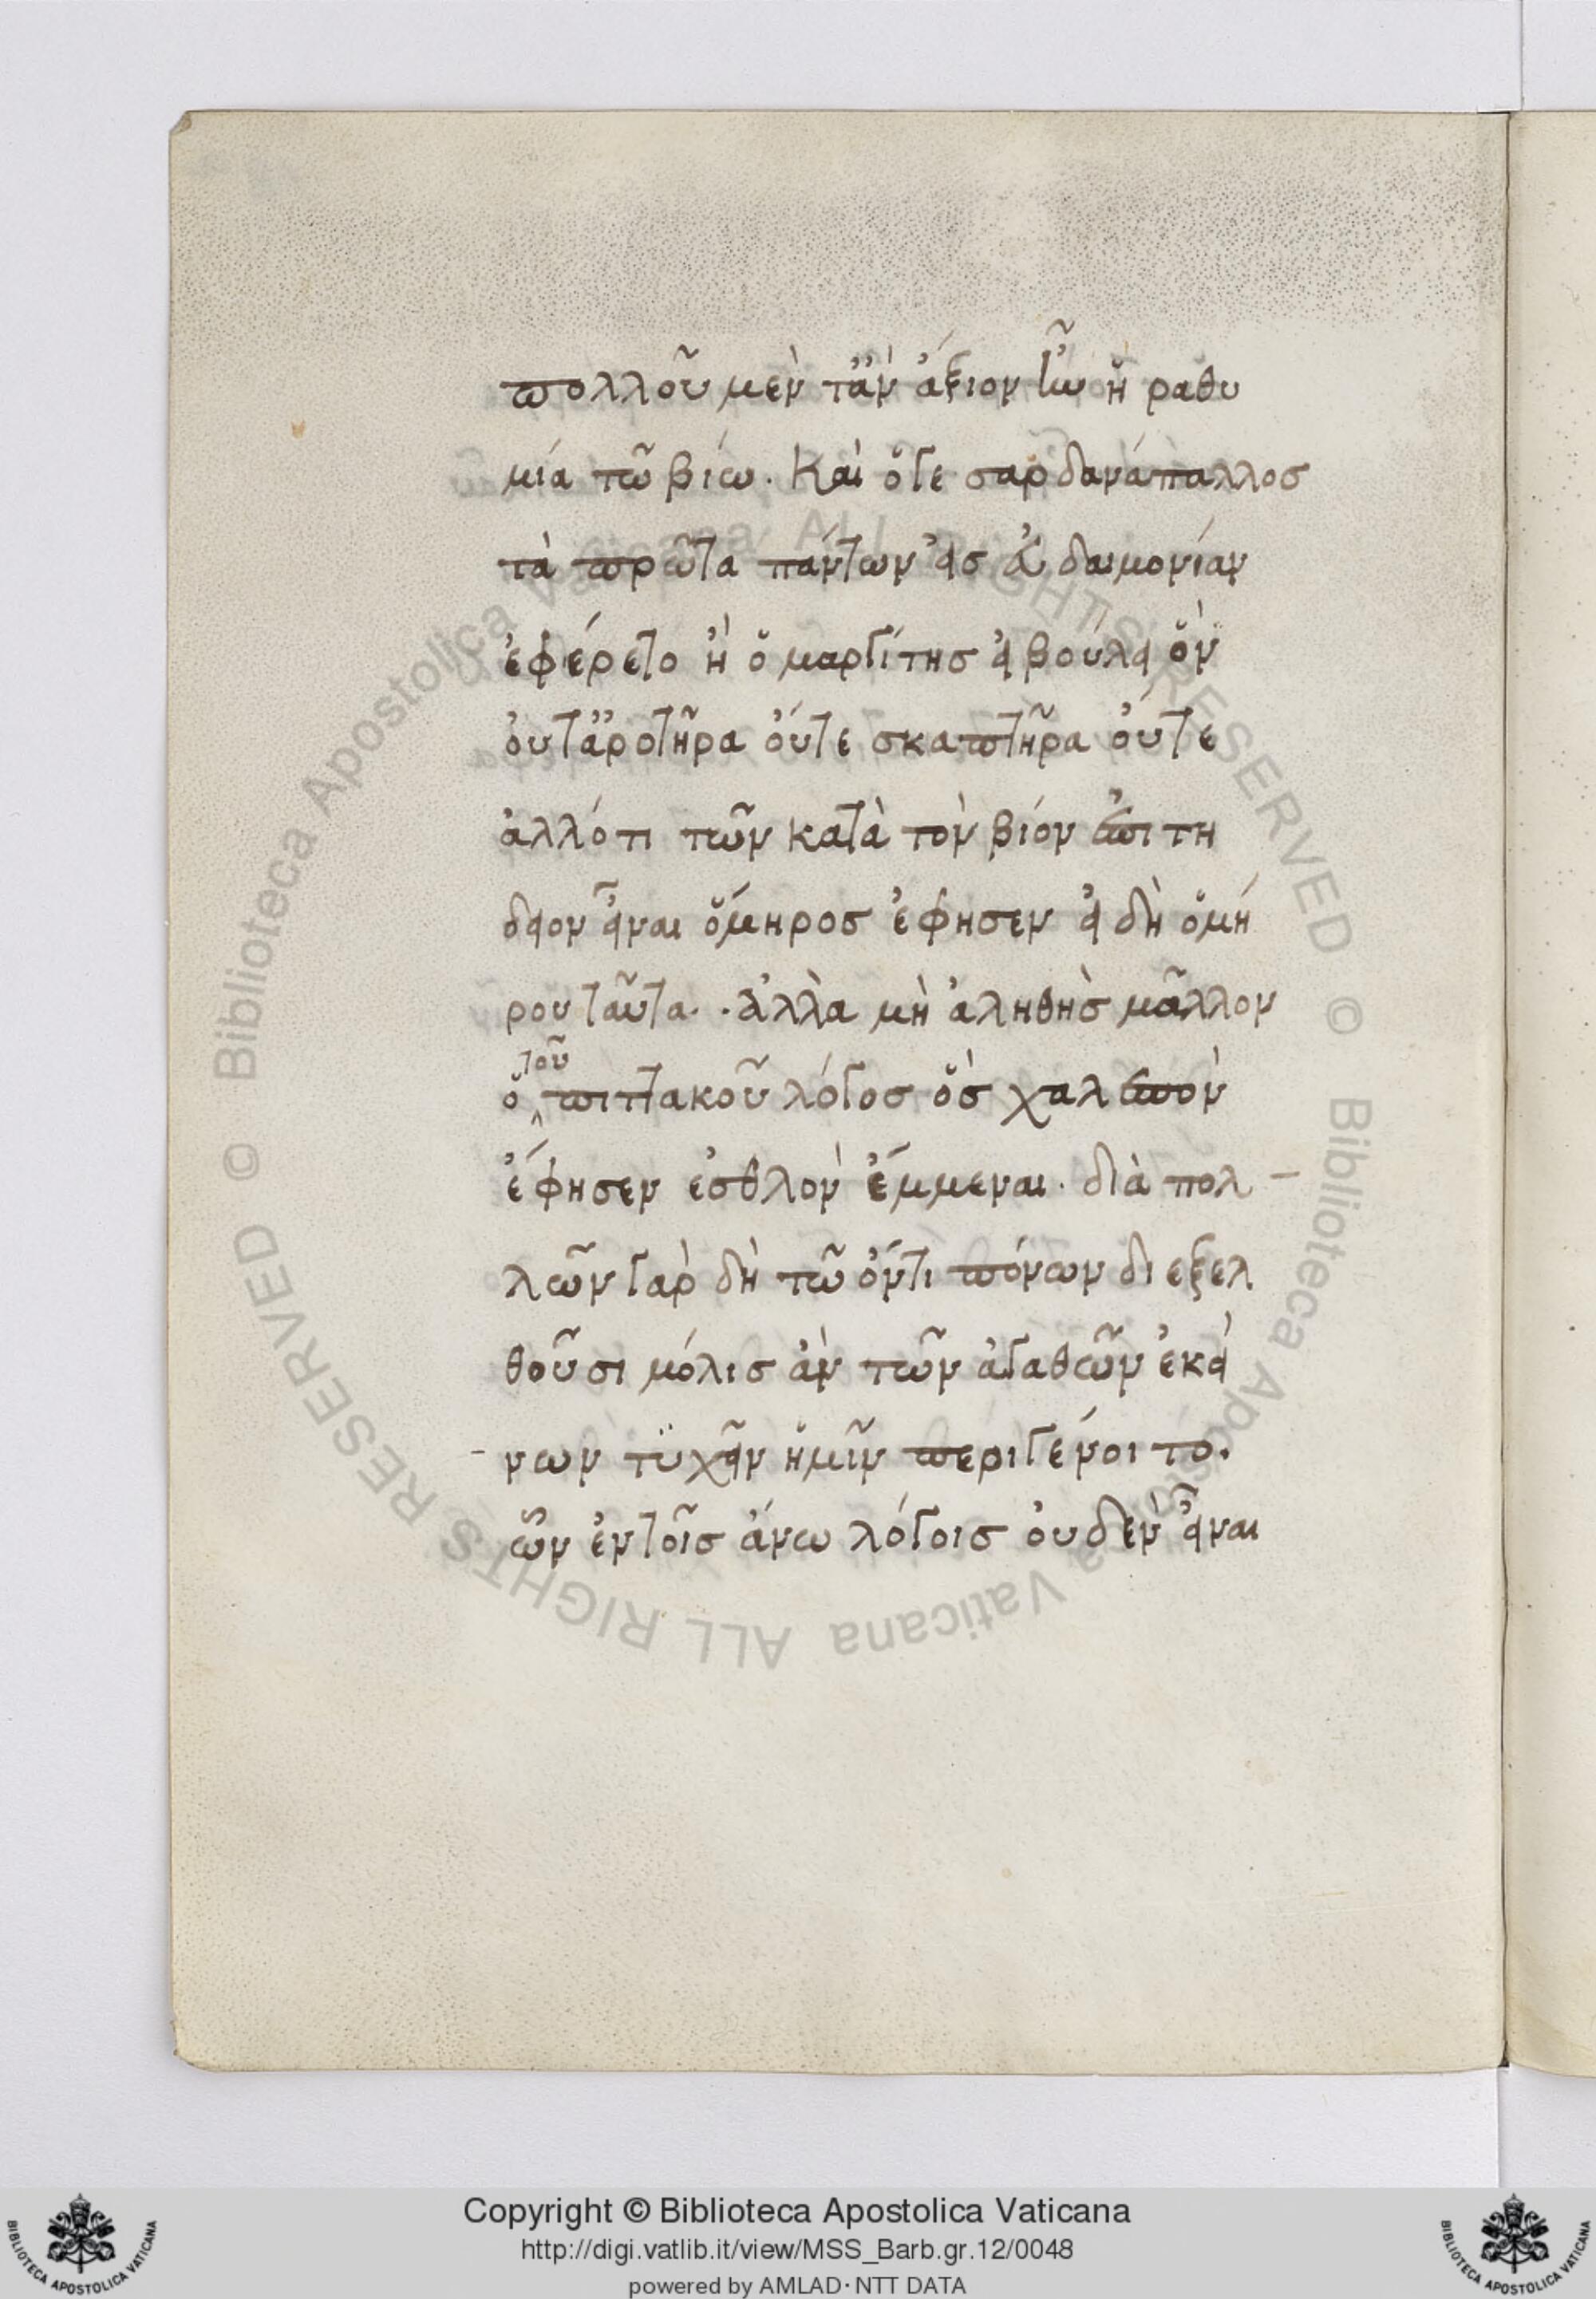 πολλοῦ μὲν τἂν ἄξιον ἦν ἡ ραθυ
μία τῶ βίω. Καὶ ὅγε σαρδανάπαλλοσ
τὰ πρῶτα πάντων εἰσ εὐδαιμονίαν
ἐφέρετο ἢ ὁ μαργίτησ εἰ βούλει ὃν
οὐτἀροτῆρα οὔτε σκαπτῆρα οὔτε
ἀλλότι τῶν κατὰ τὸν βίον ἐπιτή
δειον εἶναι ὅμηροσ ἔφησεν εἰ δὴ ὁμή
ρου ταῦτα. . Ἀλλὰ μὴ ἀληθὴσ μᾶλλον
ὁ τοῦ πιττακοῦ λόγοσ ὃσ χαλεπὸν
ἔφησεν ἐσθλὸν ἔμμεναι. διὰ πολ -
λῶν γὰρ δὴ τῶ ὄντι πόνων διεξελ
θοῦσι μόλισ ἂν τῶν ἀγαθῶν ἐκεί
- νων τϋχεῖν ἡμῖν περιγένοιτο.
ὧν ἐντοῖσ ἄνω λόγοισ οὐδὲν εἶναι
Copyright © Biblioteca Apostolica Vaticana
http://digi.vatlib.it/view/MSS_Barb.gr.12/0048
powered by AMLAD·NTT DATA
BIBLIOTECA APOSTOLICA VATICANA
BIBLIOTECA APOSTOLICA VATICANA
© Biblioteca Apostolica Vaticana ALL RIGHTS RESERVED
© Biblioteca Apostolica Vaticana ALL RIGHTS RESERVED